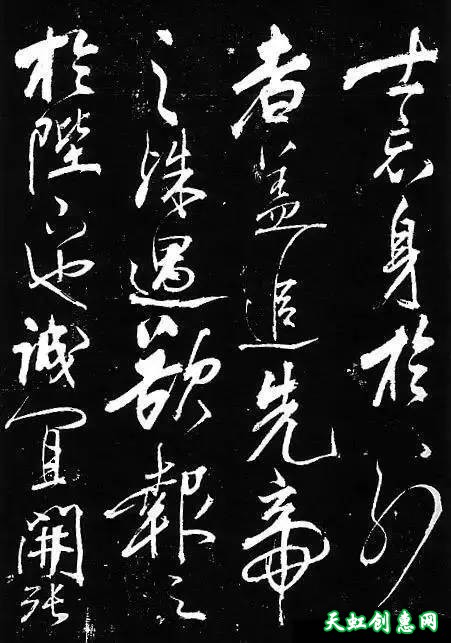 士忘身於外
者盖追先帝
之殊遇欲報之
於陛下也誠宜開張
天虹创惠网